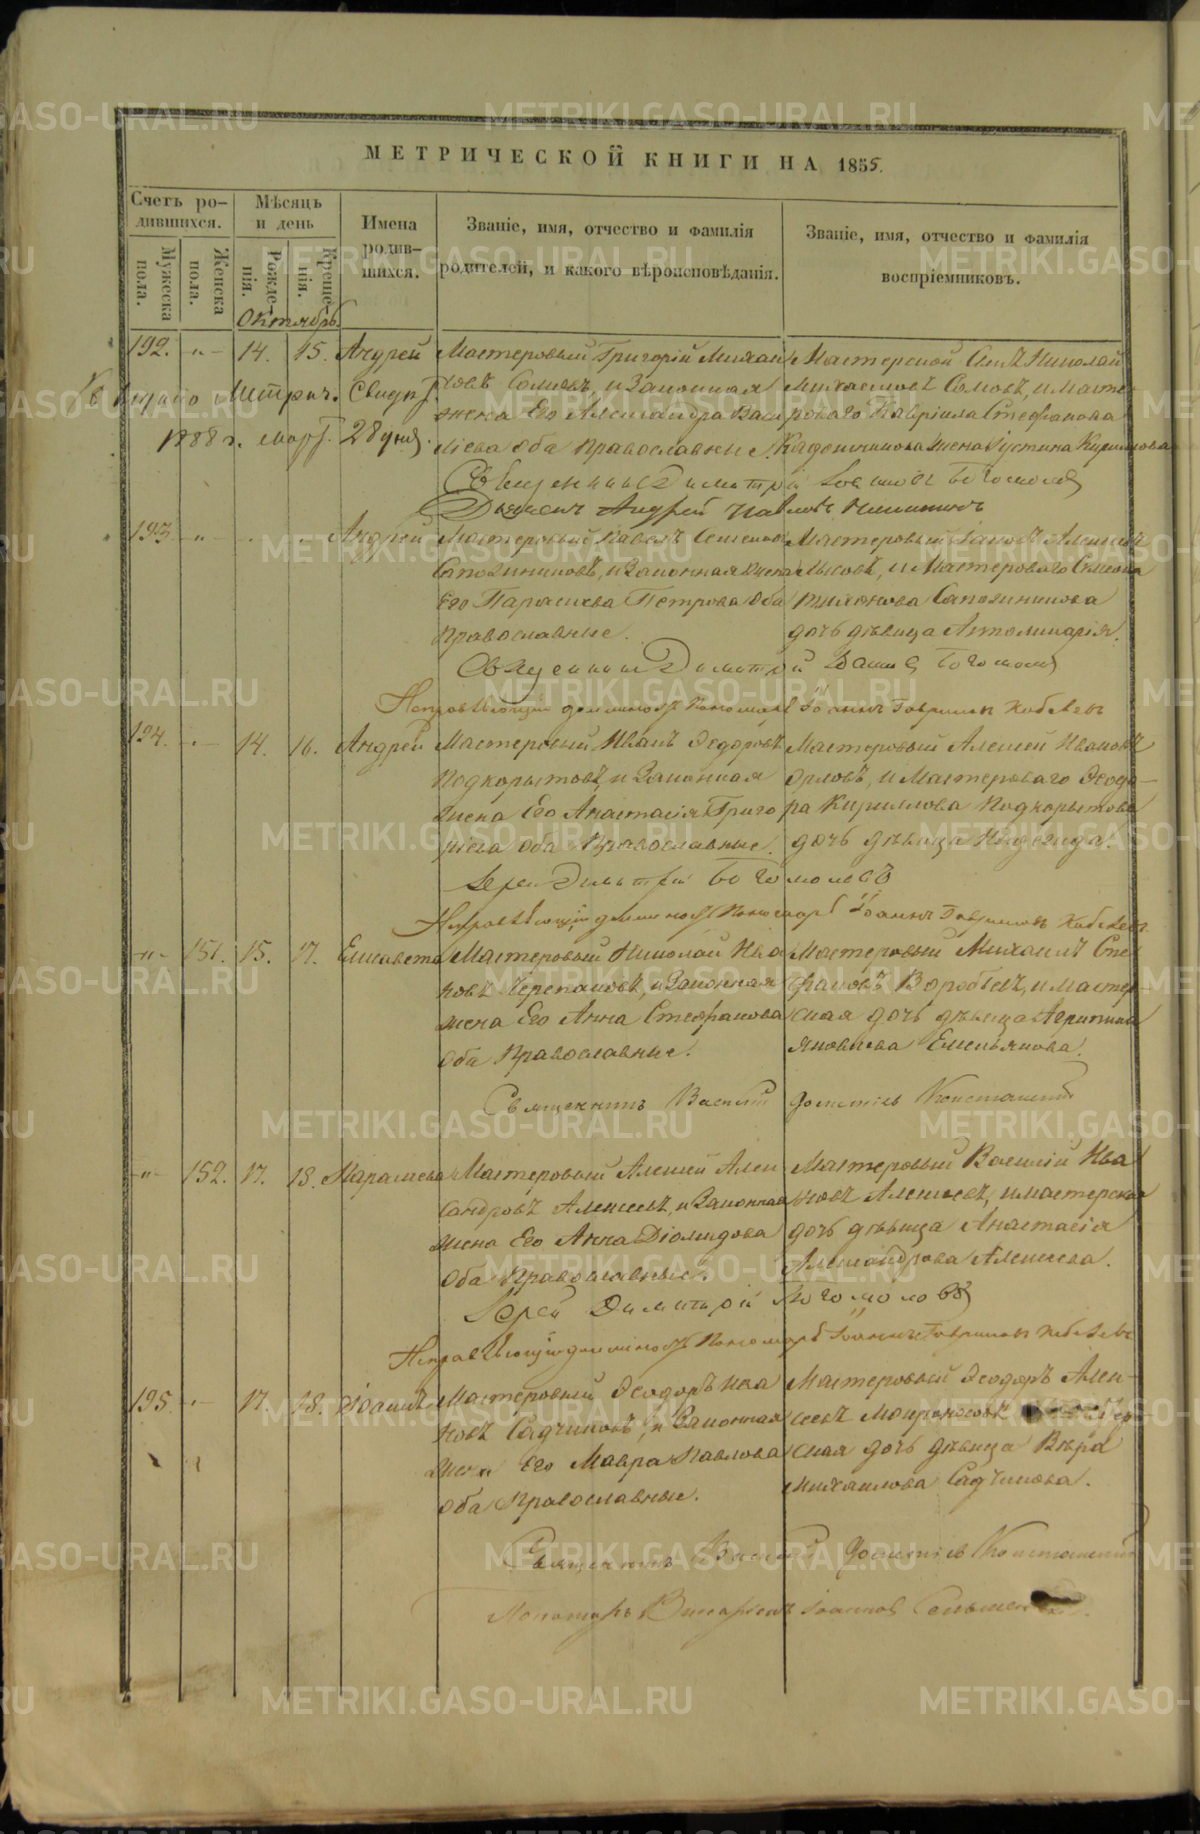 МЕТРИЧЕСКОЙ КНИГИ НА 1855.
Счетъ ро-
дившихся.
Мѣсяцъ
и день
Имена
родив-
шихся.
Званіе, имя, отчество и фамилія
родителей, и какого вѣроисповѣданія.
Званіе, имя, отчество и фамилія
воспріемниковъ.
Мужеска
пола.
Женска
пола.
Рожде-
нія.
Креще-
нія.
Октябрь
192. -"- 14. 15. Андрей Мастеровый Григорій Михаи
ловъ Сомовъ, и Законная
жена Его Александра Васи
ліева оба православные.
Мастерской Сынъ Николай
Михаиловъ Сомовъ, и масте-
роваго Гавріила Стефанова
жена Іустина Кирилова
Выдано Метрич. Свидѣт.
1888 г. март. 28 дня.
Священникъ Димитрій Богомолов
Діаконъ Андрей
193. -"- Андрей Мастеровый Павелъ Семеновъ
Сапожниковъ, и Законная жена
Его Параскева Петрова оба
Православные.
Мастеровый Алексѣй
и Мастероваго Симеона
Тихонова Сапожникова
дочь дѣвица Апполинарія.
Священникъ Димитрій Богомолов
Исправляющій должность Пономаря Іоаннъ Гавриловъ
194. -"- 14. 16. Андрей Мастеровый Иванъ Ѳедоровъ
Подкорытовъ, и Законная
жена Его Анастасія Григо
ріева оба Православные.
Мастеровый Алексѣй Ивановъ
Орловъ, и Мастероваго Ѳеодо-
ра Кирилова Подкорытова
дочь дѣвица Надежда.
Іерей Димитрій Богомоловъ
Исправляющій должность Пономаря Іоаннъ Гавриловъ
-"- 151. 15. 17. Елисавета Мастеровый Николай Ива
новъ Черепановъ, и Законная
жена Его Анна Стефанова
оба Православные.
Мастеровый Михаилъ Сте
фановъ Воробьевъ, и мастер-
ская дочь дѣвица Агрипина
Яковлева Емельянова.
Священникъ Василій
-"- 152. 17. 18. Параскева Мастеровый Алексѣй Алек
сандровъ Алексѣевъ, и Законная
жена Его Анна Діомидова
оба Православные.
Мастеровый Василій Ива
новъ Алексѣевъ, и мастерская
дочь дѣвица Анастасія
Александрова Алексѣева.
Іерей Димитрій Богомоловъ
Исправляющій должность Пономаря Іоаннъ Гавриловъ
195. -"- 17. 18. Іоаннъ Мастеровый Ѳеодоръ Ива
новъ Садчиковъ, и Законная
жена Его Мавра Павлова
оба Православные.
Мастеровый Ѳеодоръ Алек-
сѣевъ Мокроносовъ
ская дочь дѣвица Вѣра
Михаилова Садчикова.
Священникъ Василій
Пономарь Виссаріонъ Іоанновъ
METRIKI.GASO-URAL.RU